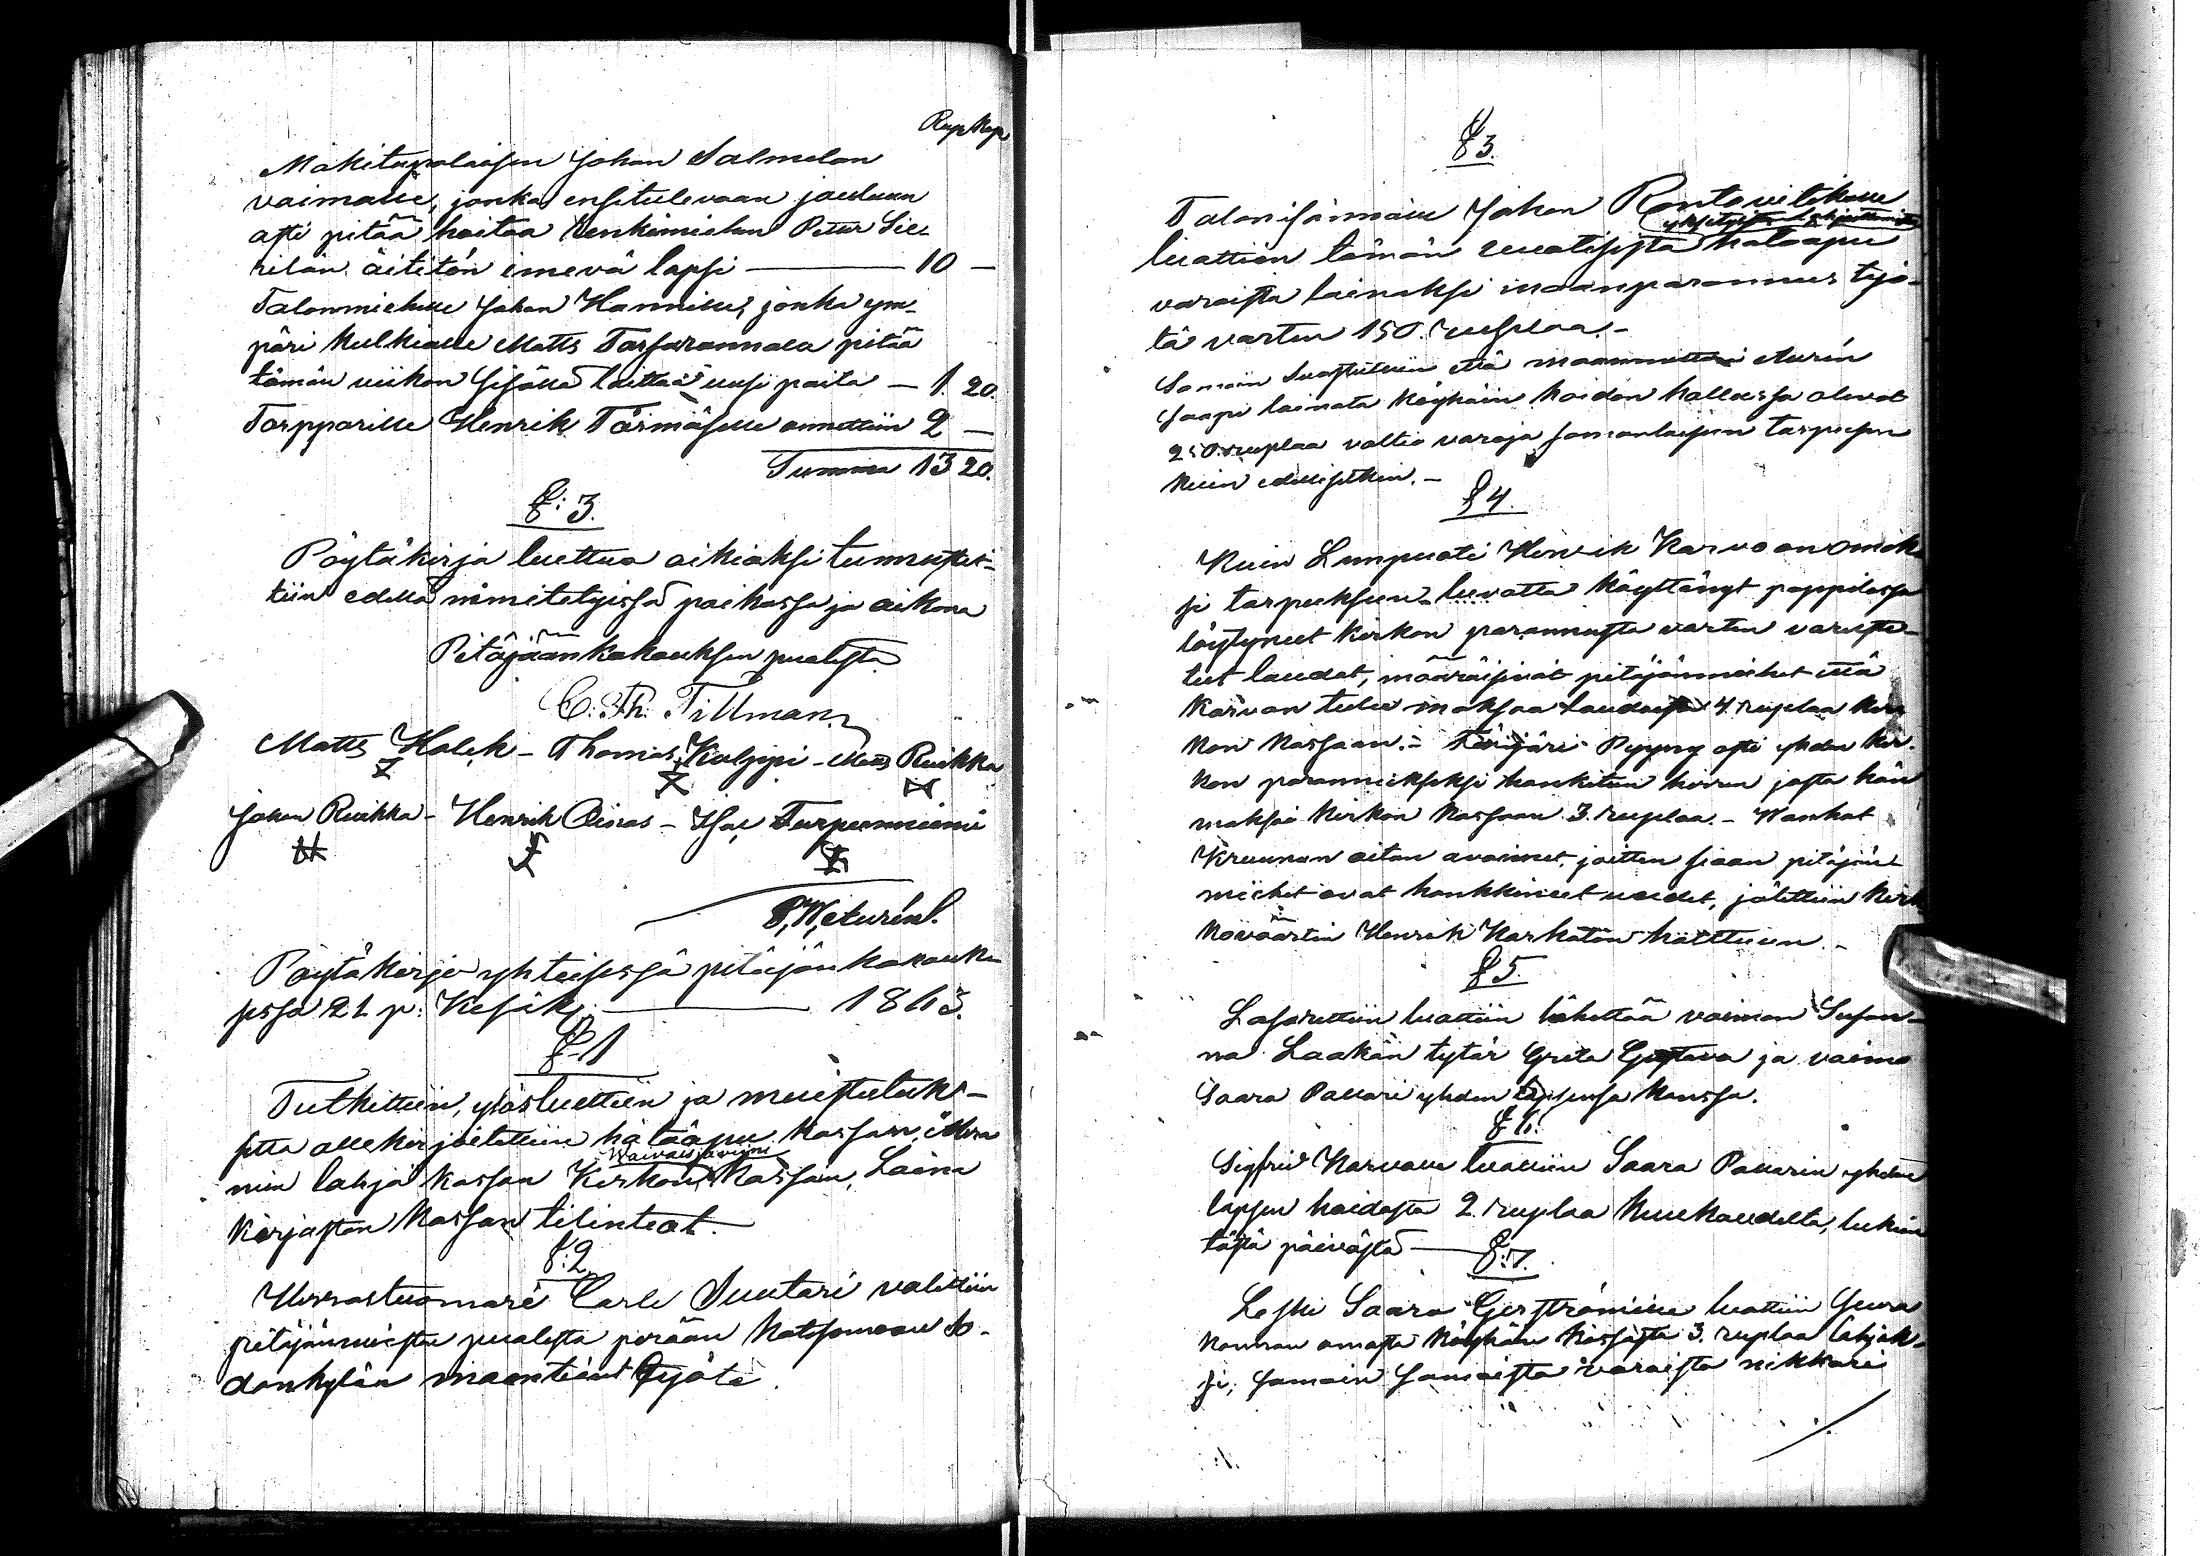 Rup Kop
Mäkitupalaisen Johan Salmelan
vaimolle, jonka ensitulevaan jouluun
asti pitää hoitaa Renkimiehen Petter Sie-
rilän äititön imevä lapsi — 10 —
Talonmiehelle Johan Hannille, jonka ym-
päri kulkialle Matts Tarsarannalla pitää
tämän viikon sisällä laittaa uusi paita — 1. 20.
Torpparille Henrik Törmäselle annettiin 2 —
Summa 13 20.
§: 3.
Pöytäkirja luettua oikiaksi tunnustet-
tiin edellä nimitetyissä paikassa ja aikana
Pitäjäänkokouksen puolesta
C. Th. Tillman
Matts Holck - Thomas Kulppi - Matts Ruikka
Johan Ruikka - Henrik Oinas - Isac Turpeenniemi
P. W. Aurén.
Pöytäkirja yhteisessä pitäjän kokouk-
sessa 21 p: Kesäk. — 1863.
§-1
Tutkittiin, ylösluettiin ja muistutuk-
sitta allekirjoitettiin hätäapu kassan,
nin lahja kassan Kirkon, Kassain, Laina
Waivais ja viina
kirjaston Kassan tilinteot.
§: 2
Herrastuomari Carl Suutari valittiin
pitäjänmiesten puolesta perään katsomaan So-
dankylän maantiönt työtä.
§ 3.
Talonisännälle Johan Rontovilikalle
luattiin tämän vuotisista hätäapu
varoista lainaksi maanparannus työ-
tä varten 150. ruplaa.-
Samoin suostuttiin että Aurén
saapi lainata köyhäin hoidon hallussa olevat
250. ruplaa valtio varoja samanlaiseen tarpeesen
kuin edellisetkin. -
§ 4.
Kuin Lumpuoti Henrik Karvo on omak-
si tarpeekseen luvatta käyttänyt pappilassa
löytyneet kirkon parannusta varten varuste-
tut laudat, määräisivät pitäjänmiehet että
Karvon tulee maksaa laudoista 4. ruplaa kir-
kon kassaan. - Pyyny osti yhden kir-
kon parannukseksi hankitun hirren josta hän
maksoi kirkon kassaan 3. ruplaa. - Wanhat
Kruunun aitan avaimet, joitten siaan pitäjän-
miehet ovat hankkineet uudet, jätettiin kirk-
kowäärtin Henrik Karhatan haltuun. -
§ 5.
Lasarettiin luattiin lähettää vaimon Susan-
na Laakän tytär Greta Gustava ja vaimo
Saara Pallari yhden lapsensa kanssa.
§ 6.
Sigfrid Karvolle luattiin Saara Pallarin yhden
lapsen hoidosta 2. ruplaa kuukaudelta, lukiin
tästä päivästä —
§: 7.
Leski Saara Gerströmille luattiin Seura
kunnan omasta köyhän kassasta 3. ruplaa lahjak-
si, samoin samoista varoista nikkari